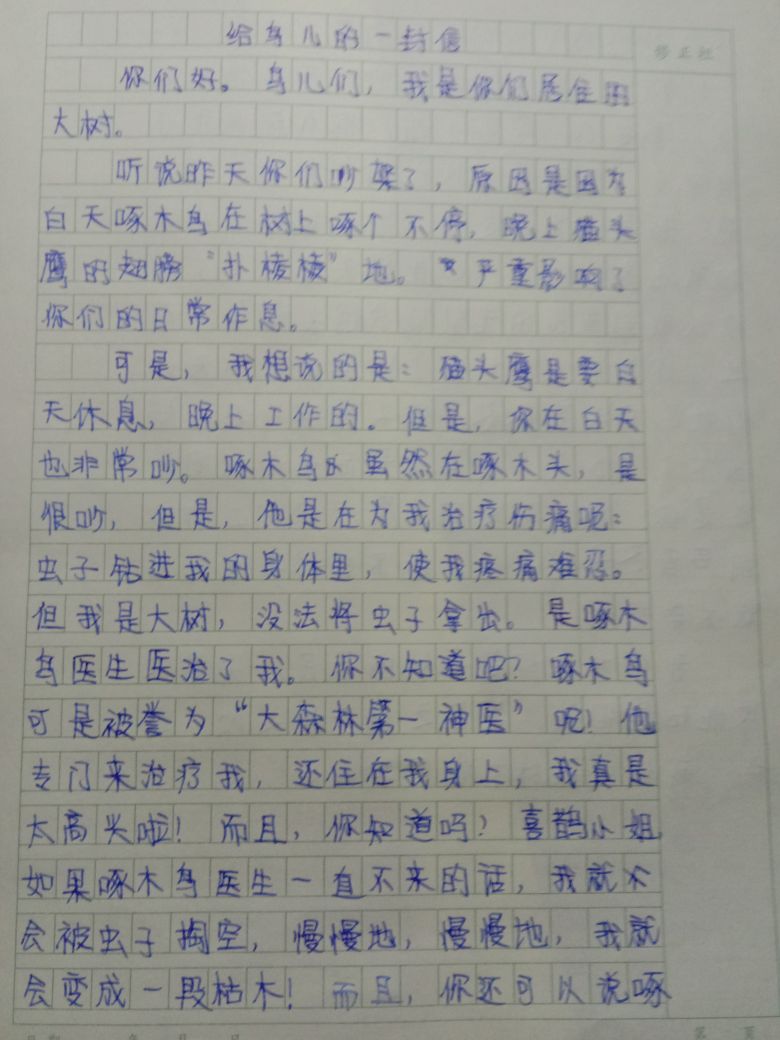 给鸟儿的一封信
修正栏
你们好。鸟儿们，我是你们居住的
大树。
听说昨天你们吵架了，原因是因为
白天啄木鸟在树上啄个不停，晚上猫头
鹰的翅膀“扑棱棱”地。严重影响了
你们的日常作息。
可是，我想说的是：猫头鹰是要白
天休息，晚上工作的。但是，你在白天
也非常吵。啄木鸟虽然在啄木头，是
很吵，但是，他是在为我治疗伤痛呢：
虫子钻进我的身体里，使我疼痛难忍。
但我是大树，没法将虫子拿出。是啄木
鸟医生医治了我。你不知道吧？啄木鸟
可是被誉为“大森林第一神医”呢！他
专门来治疗我，还住在我身上，我真是
太高兴啦！而且，你知道吗？喜鹊小姐
如果啄木鸟医生一直不来的话，我就
会被虫子掏空，慢慢地，慢慢地，我就
会变成一段枯木！而且，你还可以说啄
年 月 日
第 页